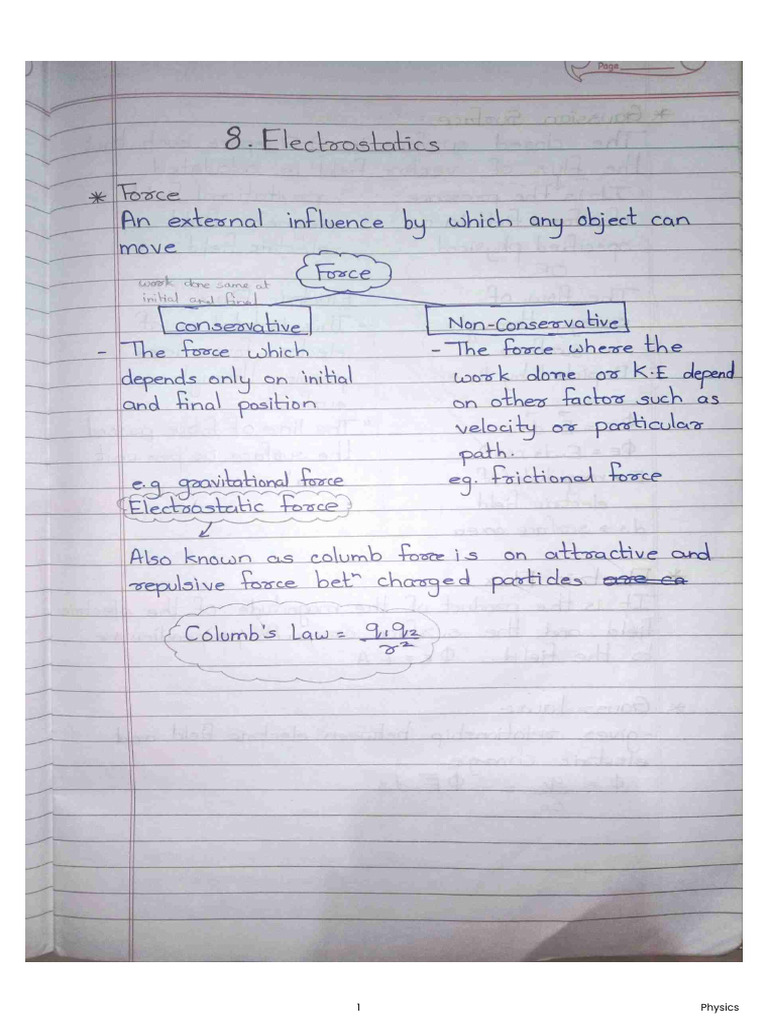 Page
8. Electrostatics
* Force
An external influence by which any object can
move
Force
work done same at
initial and final
conservative
Non-Conservative
- The force which
depends only on initial
and final position
- The force where the
work done or K.E depend
on other factor such as
velocity or particular
path.
e.g gravitational force
Electrostatic force
eg. frictional force
Also known as columb force is on attractive and
repulsive force betⁿ charged particles are ca
Columb's Law = q₁q₂/r²
1
Physics